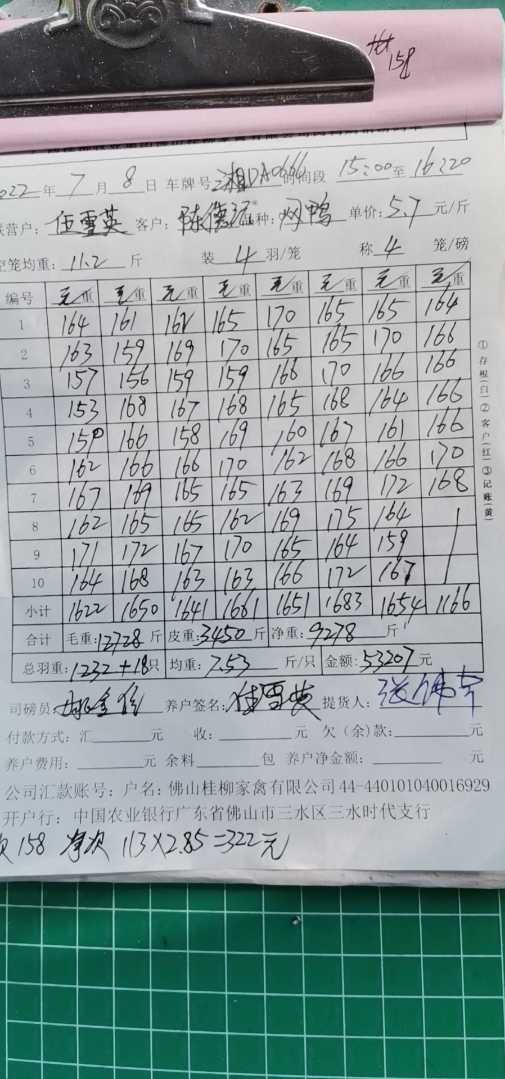 158
2022年 7 月 8 日 车牌号:湘DA0666 时间段 15:00 至 16:20
养户: 伍雪英 客户: 陈德 品种: 网鸭 单价: 5.7 元/斤
空笼均重: 11.2 斤 装 4 羽/笼 称 4 笼/磅
编号 毛重 毛重 毛重 毛重 毛重 毛重 毛重 毛重
1 164 161 162 165 170 165 165 164
2 163 159 169 170 165 165 170 166
3 157 156 159 159 166 170 166 166
4 153 168 167 168 165 168 164 166
5 159 166 158 169 160 167 161 166
6 162 166 166 170 162 168 166 170
7 167 169 165 165 163 169 172 168
8 162 165 165 162 169 175 164
9 171 172 167 170 165 164 159
10 164 168 163 163 166 172 167
小计 1622 1650 1641 1661 1651 1683 1654 1166
合计 毛重:12728 斤 皮重:3450 斤 净重:9278 斤
总羽重:1232+18只 均重:7.53 斤/只 金额:53207元
司磅员: 养户签名: 伍雪英 提货人:
付款方式:汇 元 收: 元 欠(余)款: 元
养户费用: 元 余料 包 养户净金额: 元
公司汇款账号:户名:佛山桂柳家禽有限公司44-440101040016929
开户行:中国农业银行广东省佛山市三水区三水时代支行
次 158 净次 113×2.85=322元
①存根(白)②客户(红)③记账(黄)